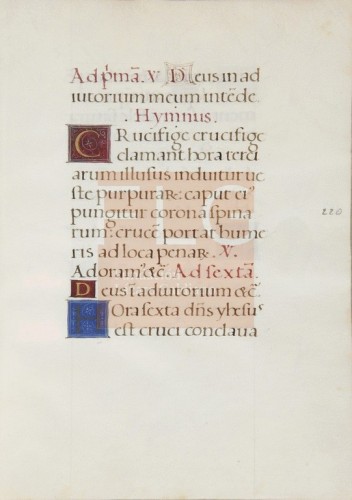 Ad p̃mã. V Deus in ad
iutorium meum intẽde
. Hymnus.
CRucifige crucifige
clamant hora terci
arum illusus induitur ue
ste purpuraꝝ: caput ei᾽
pungitur corona spina
rum: crucẽ portat hume
ris ad loca penaꝝ. V.
Adoram᾽ &c̃. Ad sextã.
Deus ĩ adiutorium &c̃.
HOra sexta dñs yhesus
est cruci conclaua
220
FLG